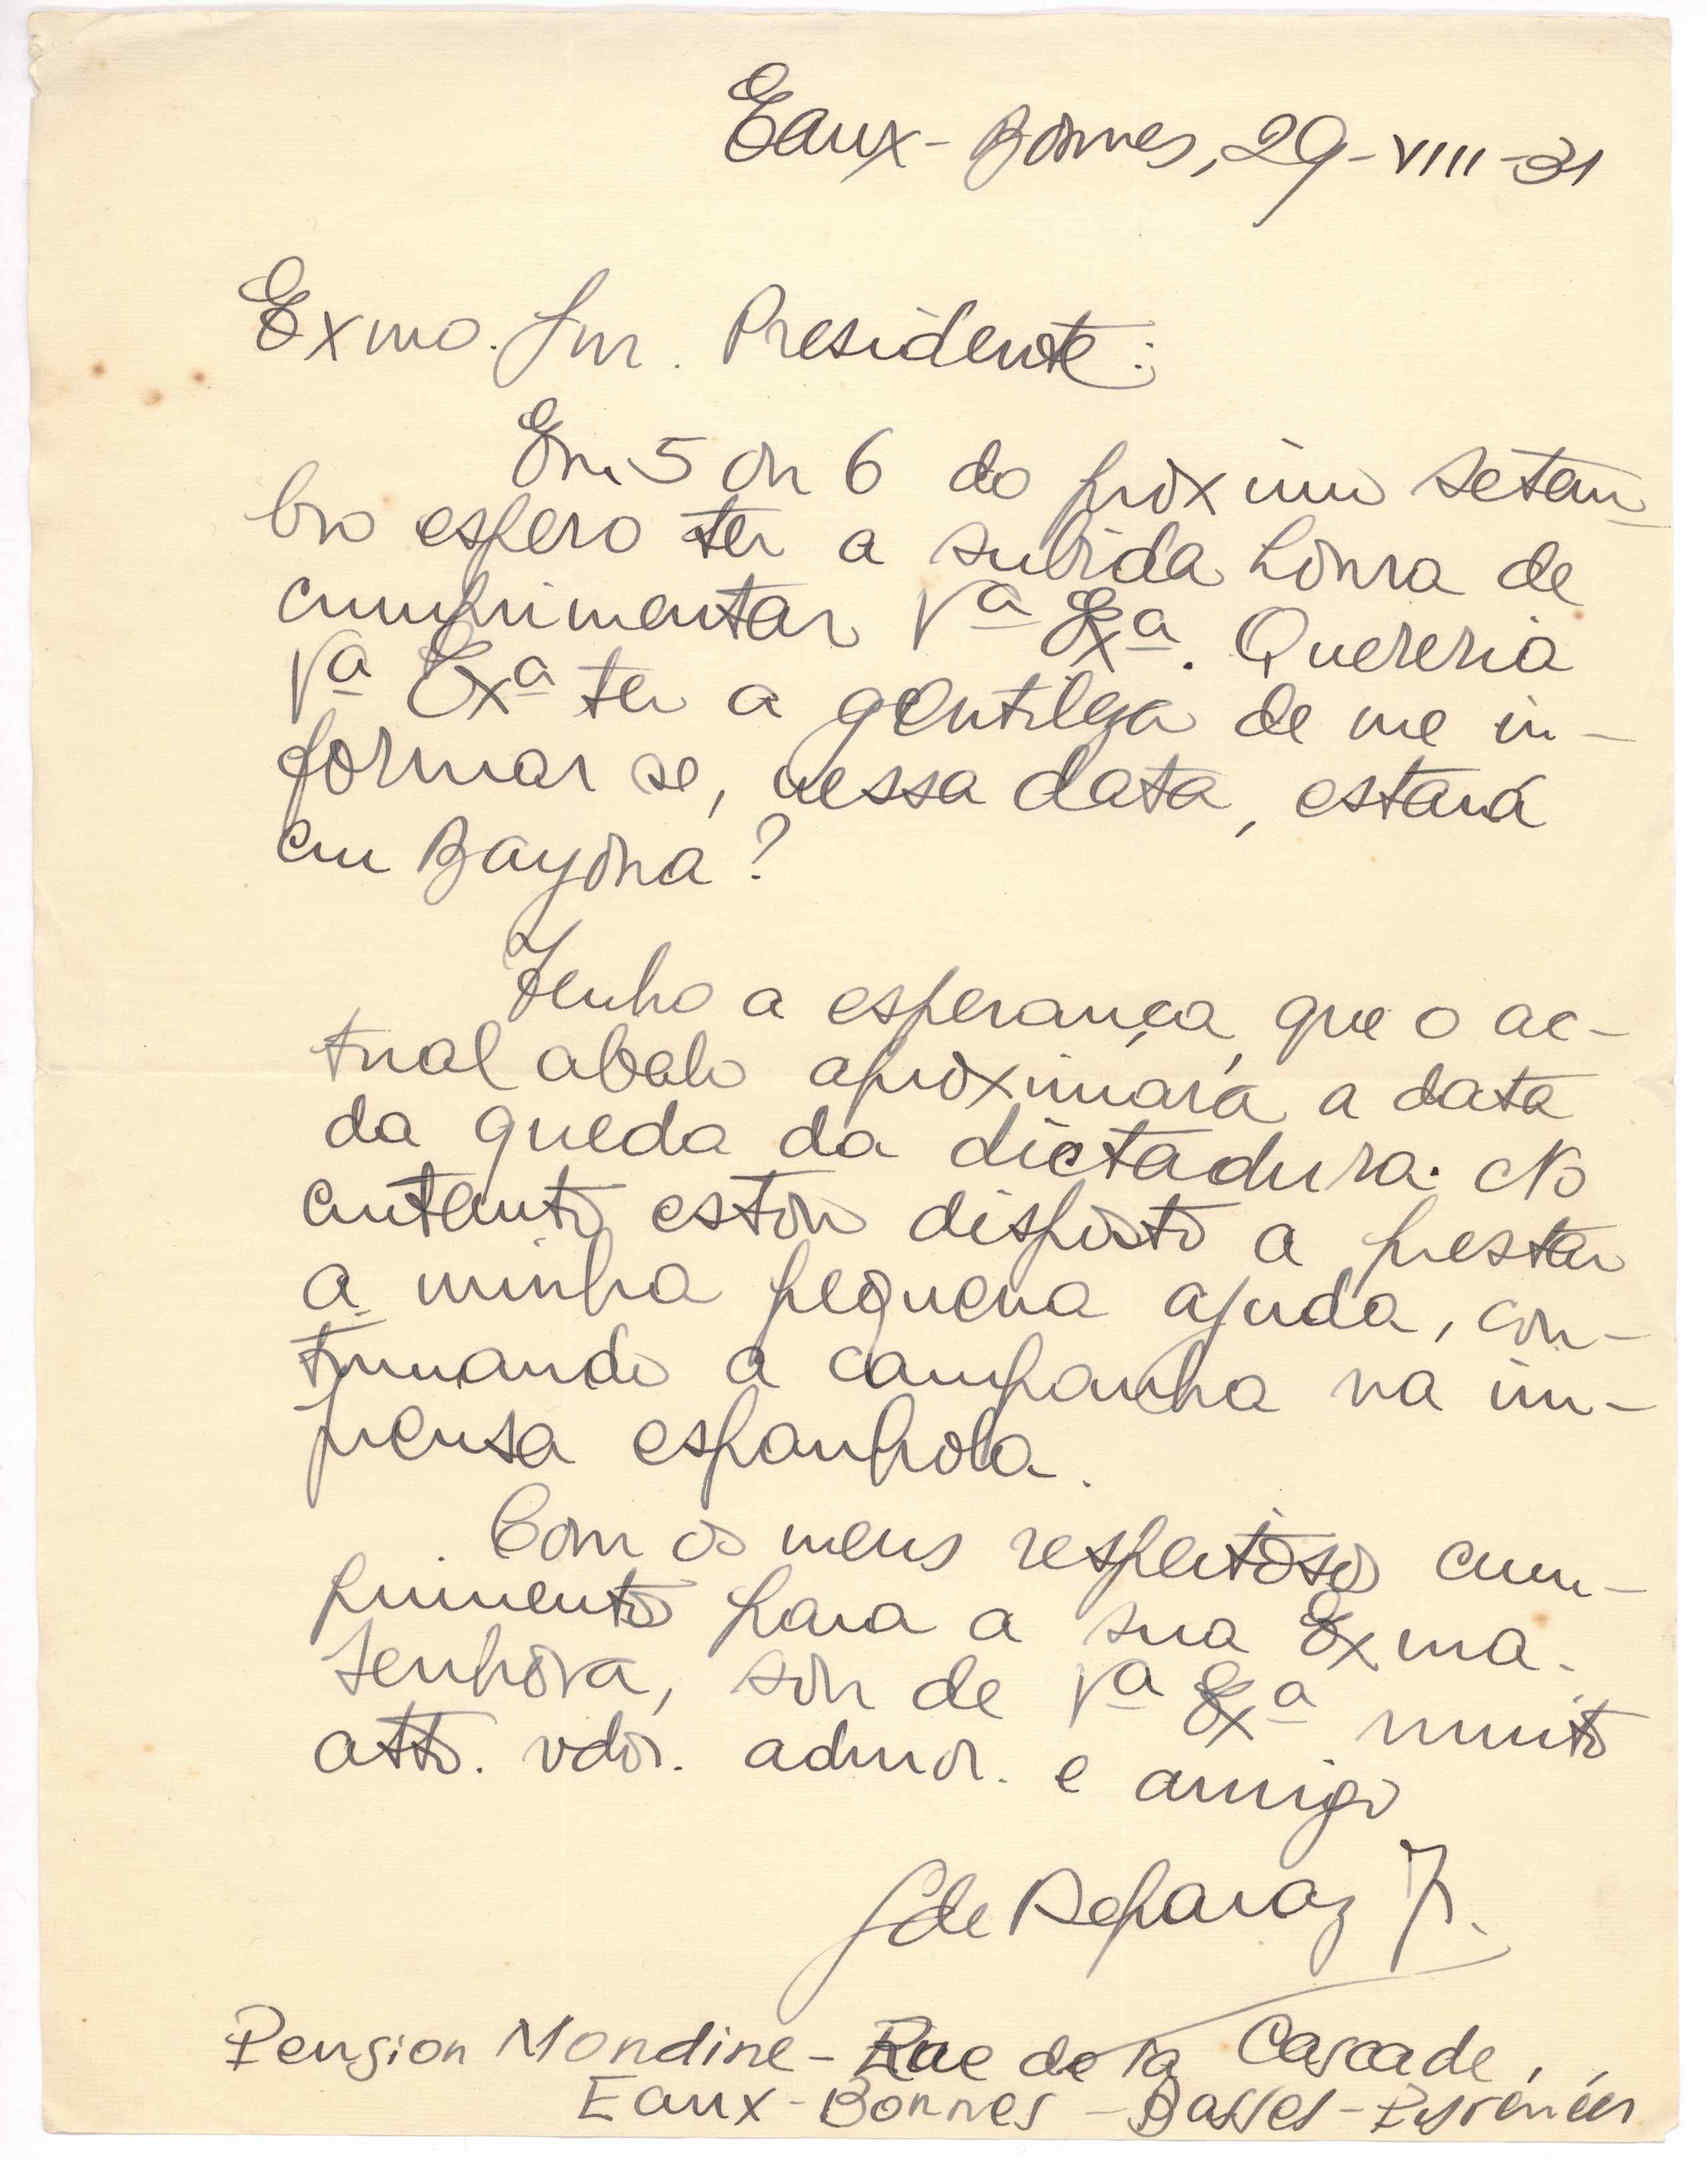 Eaux-Bonnes, 29-VIII-31
Exmo. Snr. Presidente:
Em 5 ou 6 do próximo setem-
bro espero ter a subida honra de
cumprimentar Vª Exª. Quereria
Vª Exª ter a gentileza de me in-
formar se, nessa data, estará
em Bayona?
Tenho a esperança que o ac-
tual abalo aproximará a data
da queda da dictadura. No
entanto estou disposto a prestar
a minha pequena ajuda, con-
tinuando a campanha na im-
prensa espanhola.
Com os meus respeitosos cum-
primentos para a sua Exma.
Senhora, sou de Vª Exª muito
atto. vdor. admor. e amigo
G de Reparaz Jr.
Pension Mondine - Rue de la Cascade,
Eaux-Bonnes - Basses-Pyrénées